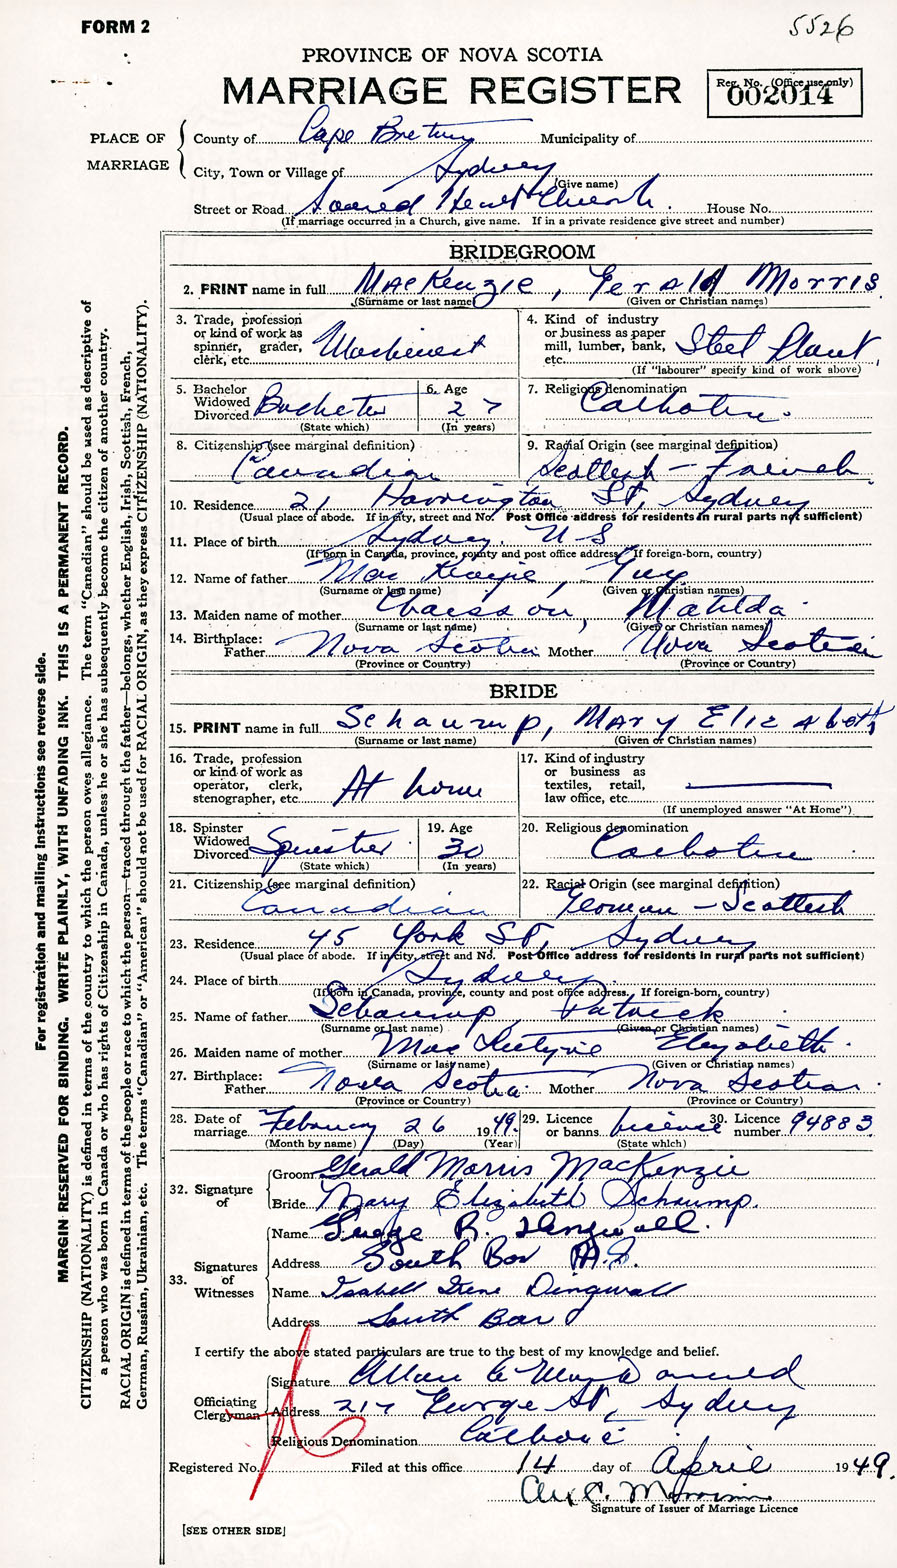 FORM 2
5526
PROVINCE OF NOVA SCOTIA
MARRIAGE REGISTER
Reg. No. (Office use only)
002014
PLACE OF MARRIAGE
County of Cape Breton Municipality of
City, Town or Village of Sydney
(Give name)
Street or Road Sacred Heart Church. House No.
(If marriage occurred in a Church, give name. If in a private residence give street and number)
BRIDEGROOM
2. PRINT name in full MacKenzie, Gerald Morris.
(Surname or last name) (Given or Christian names)
3. Trade, profession or kind of work as spinner, grader, clerk, etc. Machinest
4. Kind of industry or business as paper mill, lumber, bank, etc. Steel Plant,
(If "labourer" specify kind of work above)
5. Bachelor Widowed Divorced Bachelor
(State which)
6. Age 27
(In years)
7. Religious denomination Catholic.
8. Citizenship (see marginal definition) Canadian
9. Racial Origin (see marginal definition) Scottish - French
10. Residence 21 Harrington St, Sydney
(Usual place of abode. If in city, street and No. Post Office address for residents in rural parts not sufficient)
11. Place of birth Sydney. N S
(If born in Canada, province, county and post office address. If foreign-born, country)
12. Name of father MacKenzie, Guy
(Surname or last name) (Given or Christian names)
13. Maiden name of mother Chaisson, Matilda
(Surname or last name) (Given or Christian names)
14. Birthplace:
Father Nova Scotia Mother Nova Scotia
(Province or Country) (Province or Country)
BRIDE
15. PRINT name in full Schaump, Mary Elizabeth
(Surname or last name) (Given or Christian names)
16. Trade, profession or kind of work as operator, clerk, stenographer, etc. At home
17. Kind of industry or business as textiles, retail, law office, etc.
(If unemployed answer "At Home")
18. Spinster Widowed Divorced Spinster
(State which)
19. Age 30
(In years)
20. Religious denomination Catholic
21. Citizenship (see marginal definition) Canadian
22. Racial Origin (see marginal definition) German - Scottish
23. Residence 45 York St, Sydney
(Usual place of abode. If in city, street and No. Post Office address for residents in rural parts not sufficient)
24. Place of birth Sydney
(If born in Canada, province, county and post office address. If foreign-born, country)
25. Name of father Schaump, Patrick
(Surname or last name) (Given or Christian names)
26. Maiden name of mother MacIntyre Elizabeth.
(Surname or last name) (Given or Christian names)
27. Birthplace:
Father Nova Scotia Mother Nova Scotia
(Province or Country) (Province or Country)
28. Date of marriage February 26 1949.
(Month by name) (Day) (Year)
29. Licence or banns License
(State which)
30. Licence number 94883
32. Signature of
Groom Gerald Morris MacKenzie
Bride Mary Elizabeth Schaump.
33. Signatures of Witnesses
Name R. Dingwall.
Address South Bar N.S.
Name Isabell Irene Dingwall
Address South Bar
I certify the above stated particulars are true to the best of my knowledge and belief.
Officiating Clergyman
Signature
Address 217 George St, Sydney
Religious Denomination
Registered No. Filed at this office 14 day of April 1949.
Signature of Issuer of Marriage Licence
[SEE OTHER SIDE]
For registration and mailing instructions see reverse side.
MARGIN RESERVED FOR BINDING. WRITE PLAINLY, WITH UNFADING INK. THIS IS A PERMANENT RECORD.
CITIZENSHIP (NATIONALITY) is defined in terms of the country to which the person owes allegiance. The term "Canadian" should be used as descriptive of
a person who was born in Canada or who has rights of Citizenship in Canada, unless he or she has subsequently become the citizen of another country.
RACIAL ORIGIN is defined in terms of the people or race to which the person—traced through the father—belongs, whether English, Irish, Scottish, French,
German, Russian, Ukrainian, etc. The terms "Canadian" or "American" should not be used for RACIAL ORIGIN, as they express CITIZENSHIP (NATIONALITY).